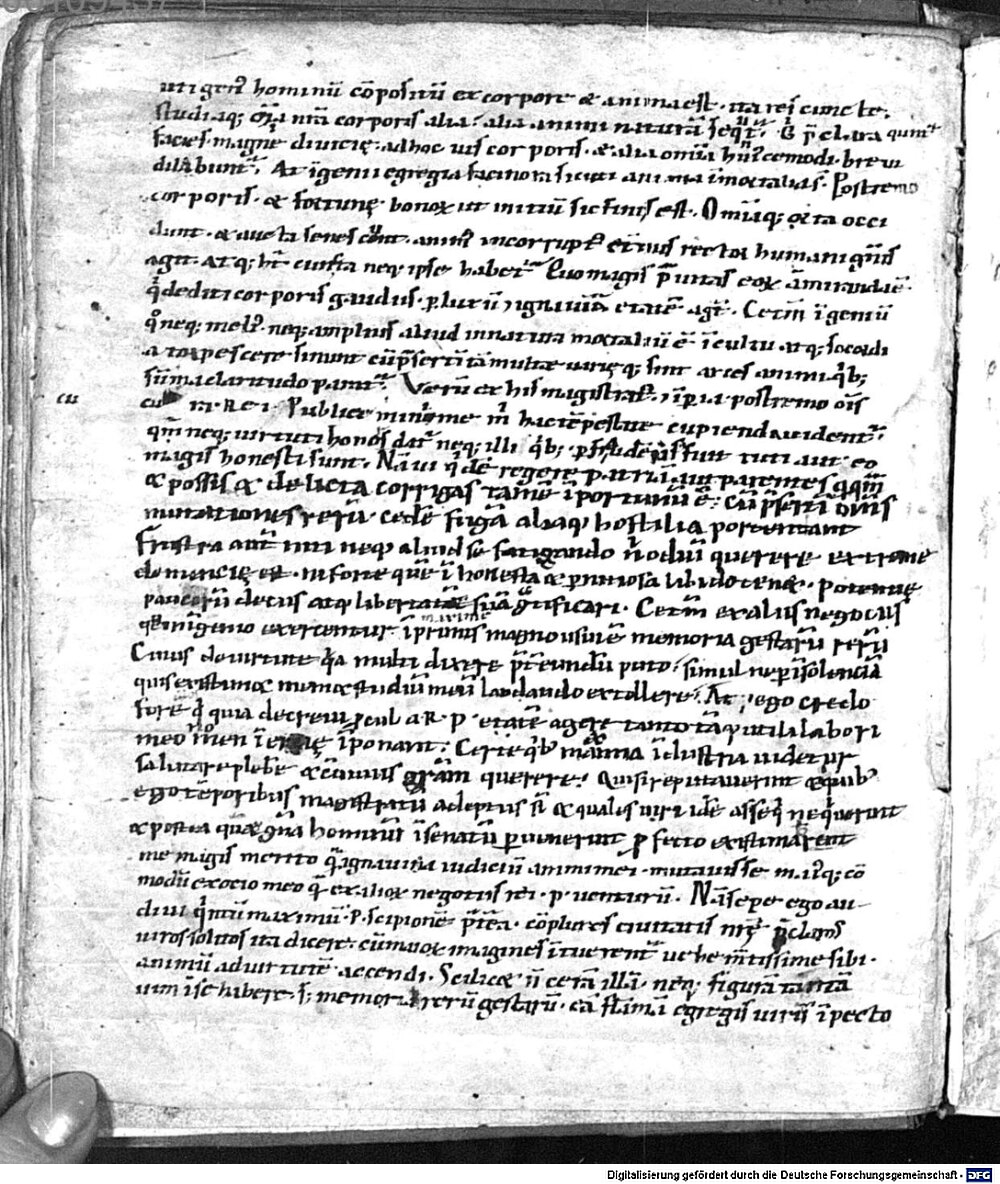 uti gen⁹ hominū cōpositū ex corpore & anima est · ita res cuncte
studiaq; oīa nr̄a corporis alia · alia animi naturā seqūt᷑ · p̄clara
facies · magne divicię · ad hoc vis corporis · & alia omīa brevi
dilabunt᷑ · At īgenii egregia facinora sicuti anima īmortalia s̄ · Postremo
corporis · & fortunę bonoꝝ ut initiū sic finis est · Omīaq; orta occi
dunt · & aucta senescūt · anim⁹ incorrupt⁹ et̄nus rector humani gn̄is
agit · atq; h̄t cuncta neq; ipse habet᷑ Quo magis p̄vitas eoꝝ āmirandā ē
q̄ dediti corporis gaudiis · ꝑ luxū ⁊ ignaviā etatē agt̄ · Cetm̄ īgeniū
q̊ neq; meli⁹ · neq; amplius aliud in natura mortaliū ē · ī cultu atq; socordi
a torpescere sinunt cū p̄sertī tā multe varięq; sint artes animi qͥb;
sūma claritudo parat᷑ · Verū ex his magistrat⁹ · ⁊ īꝑia · postremo oīs
cu ra · Rei · Publice minime m̄ hac tēpestate cupienda vident᷑ ·
qm̄ neq; virtuti honos dat᷑ neq; illi qͥb; ꝑ fraudē fuit tuti aut eo
magis honesti sunt · Nā vi qͥdē regere patriā aut parentes qq̄m
& possis & delicta corrigas tamē īportunū ē · cū p̄sertī om̄s
mutationes rerū · cedē fugā aliaq; hostilia portendant
Frustra aut̄ niti neq; aliud se fatigando n̄ odiū querere extreme
demencię est · ni forte quē ī honesta & ꝑniciosa libido tenet · Potentię
paucorū decus atq; libertatē suā gͣtificari · Cetm̄ ex aliis negociis
maxime
que īgenio exercentur · īprimis magno usui ē memoria gestarū rerū
Cuius de virtute qͥa multi dixere p̄t̄eundū puto · simul ne ꝑ īsolenciā
quis existimet memet studiū meū laudando extollere · At ego credo
fore qͥ quia decrevi ꝓcul a R · P · etatē agere tanto tāq; utili labori
meo nomen īercię īponant · Certe qͥb; maxima īdustria videtur
salutare plebē & cōviviis grām querere · Qui si reputaverint & quib⁹
ego tēporibus magistratū adeptus sū & quales viri idē asseqͥ neqͥverint
& postea quę gn̄a hominū ī senatū ꝑvenerint ꝓfecto existimarent
me magis merito q̄ ignavia iudiciū animi mei · mutavisse maiusq; cō
modū ex ocio meo q̄ ex alioꝝ negotiis rei · p · venturū · Nā sepe ego au-
divi q̄ntū maximū · P · scipionē p̄t̄ea · cōplures civitatis nrę p̄claros
viros solitos ita dicere · cū maioꝝ imagines ītuerent᷑ vehem̄tissime sibi ·
animū ad virtutē accendi · Scilicet n̄ cerā illā · neq; figurā tantā
vim ī se habere · s; memoria rerū gestarū · eā flāmā egregiis viris ī pecto
cu
Digitalisierung gefördert durch die Deutsche Forschungsgemeinschaft - DFG